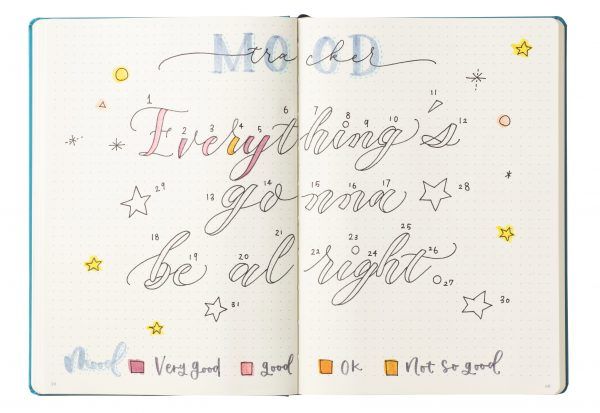 MOOD
tracker
1 2 3 4 5 6 7 8 9 10 11 12
Everything's
29 13 14 15 16 17 28
gonna
18 19 20 21 22 23 24 25 26 27
be al right.
31 30
Mood Very good good OK Not so good